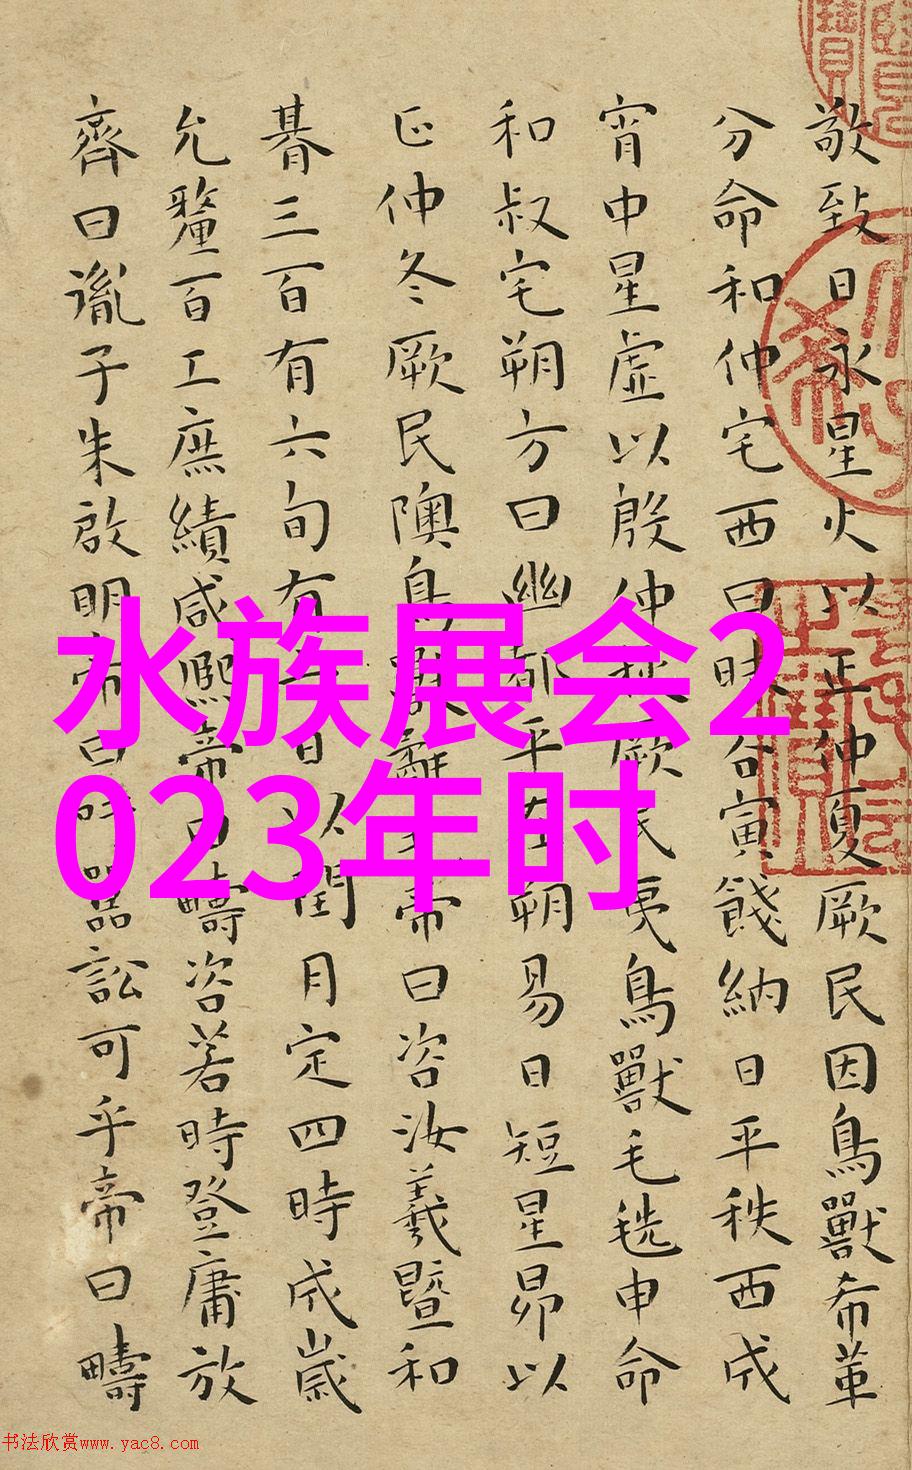 敬致日永星火以正仲夏厥民因鳥獸希革
分命和仲宅西曰昧谷寅餞納日平秩西成
宵中星虛以殷仲秋厥民夷鳥獸毛毨申命
和叔宅朔方曰幽都平在朔易日短星昴以
正仲冬厥民隩鳥獸氄毛帝曰咨汝羲暨和
朞三百有六旬有六日以閏月定四時成歲
允釐百工庶績咸熙帝曰疇咨若時登庸放
齊曰胤子朱啟明帝曰吁嚚訟可乎帝曰疇
水族展会2
023年时
书法欣赏www.yac8.com